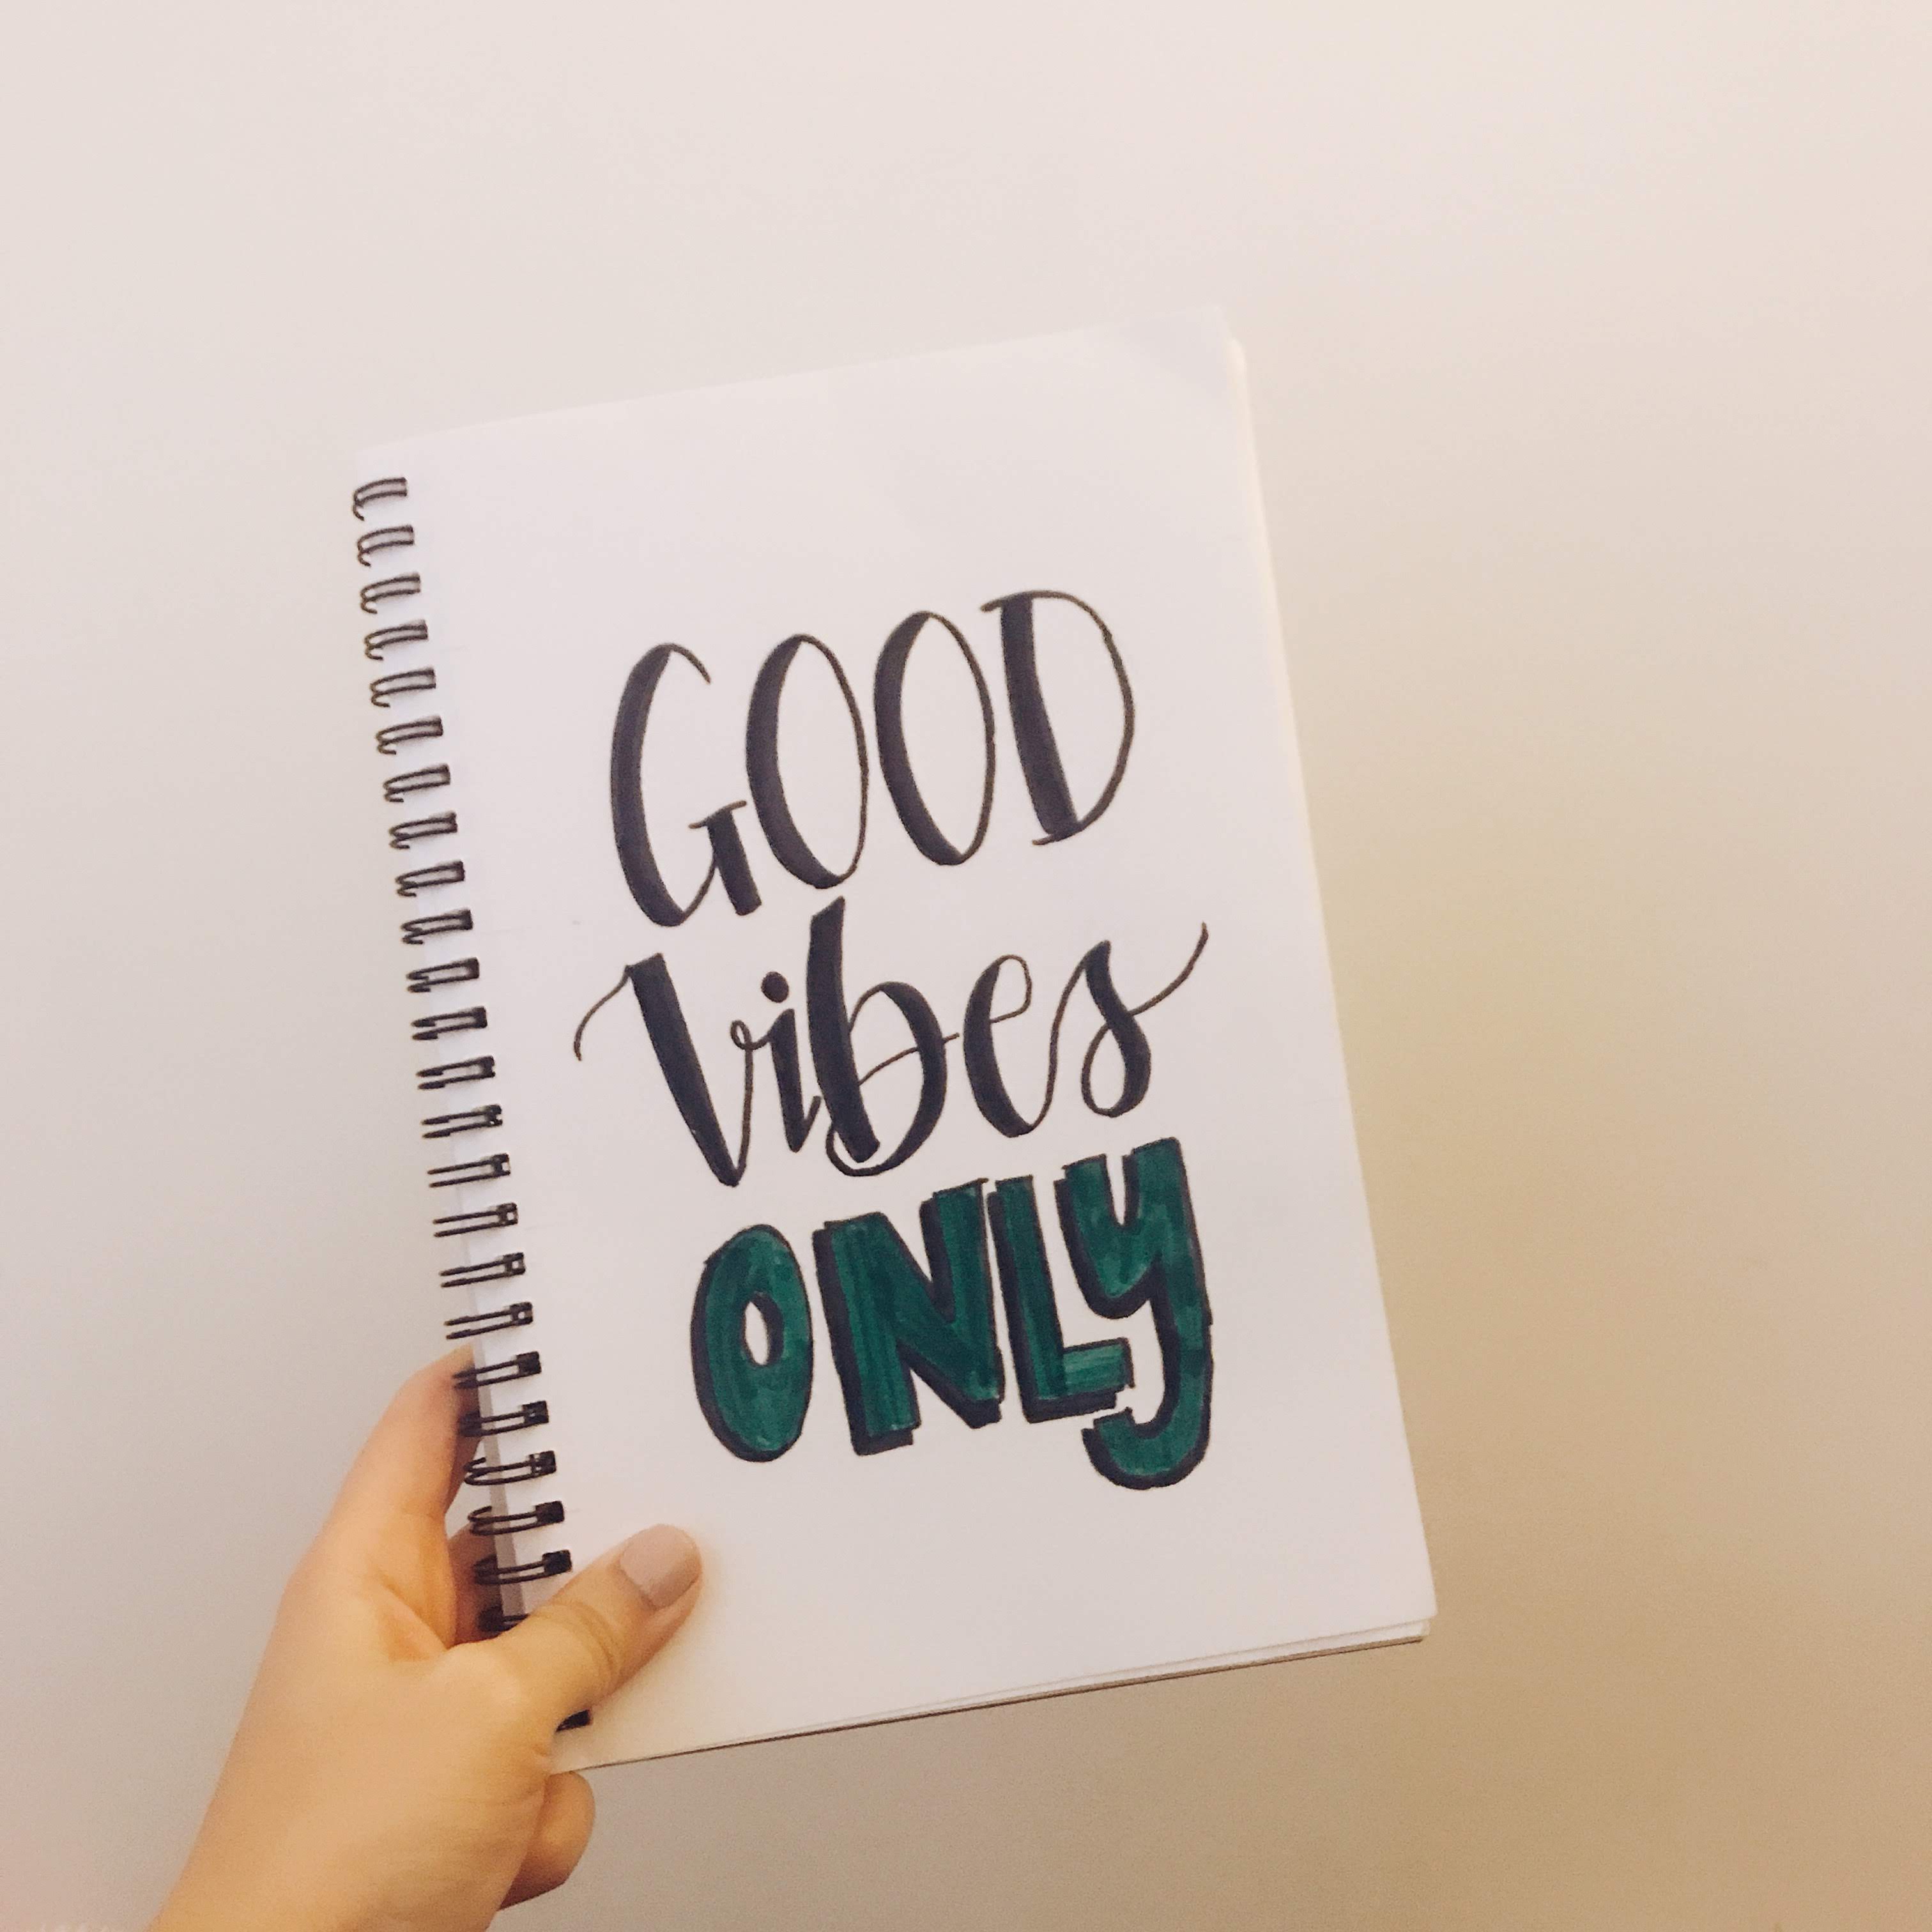 GOOD
Vibes
ONLY